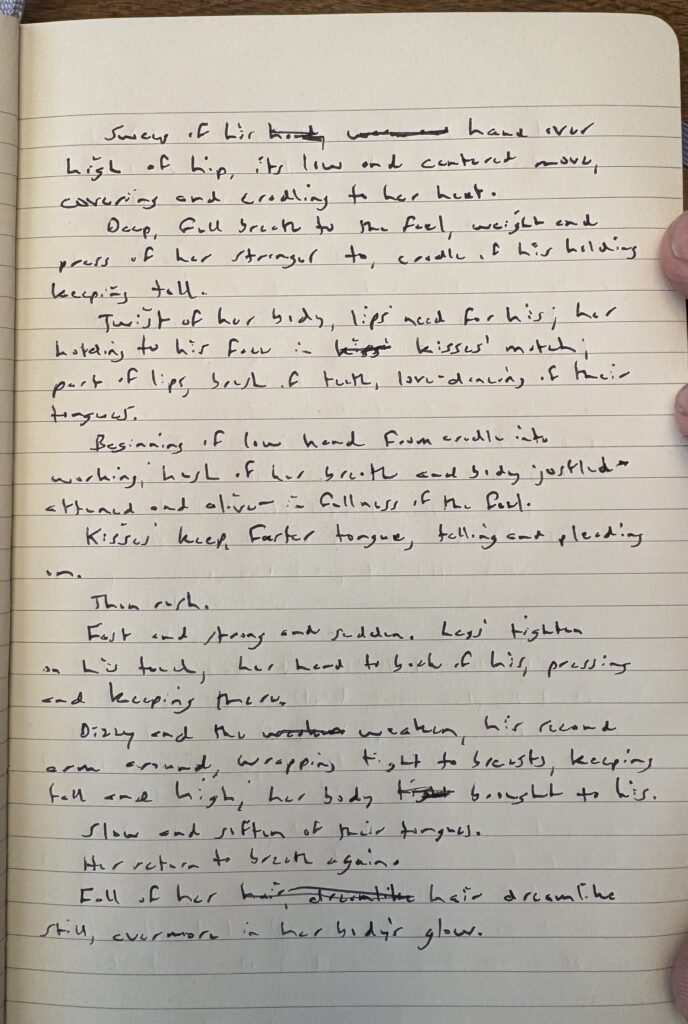 Sweep of his hand over
high of hip, its low and centered move,
covering and cradling to her heat.
Deep, full breath to the feel, weight and
press of her stronger to, cradle of his holding
keeping tall.
Twist of her body, lips' need for his; her
holding to his face in kisses' match;
part of lips, brush of teeth, love-dancing of their
tongues.
Beginning of low hand from cradle into
working; hush of her breath and body jostled-
attuned and alive- in fullness of the feel.
Kisses' keep, faster tongue, telling and pleading
on.
Then rush.
Fast and strong and sudden. Legs' tighten
on his touch, her hand to back of his, pressing
and keeping there.
Dizzy and the weaken, his second
arm around, wrapping tight to breasts, keeping
tall and high; her body brought to his.
Slow and soften of their tongues.
Her return to breath again.
Fall of her hair dreamlike
still, evermore in her body's glow.